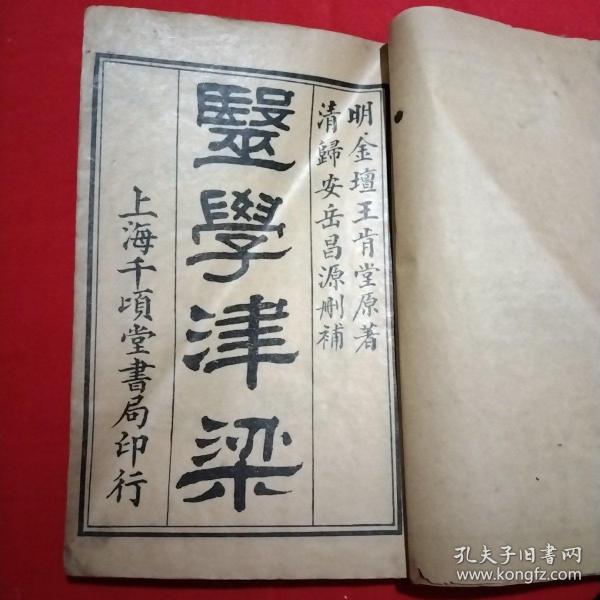 明·金壇王肯堂原著
清歸安岳昌源刪補
毉學津梁
上海千頃堂書局印行
孔夫子旧书网
www.kongfz.com